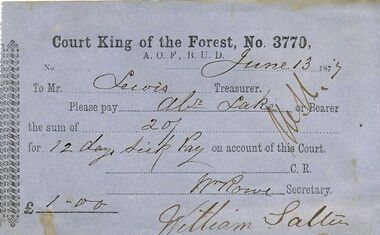 Court King of the Forest, No. 3770,
A. O. F., B. U. D.
No June 13 1877
To Mr. Lewis Treasurer.
Please pay Abr Lake or Bearer
the sum of 20/
for 12 days Sick Pay on account of this Court.
C. R.
Wm Rowe Secretary.
£ 1-00
William Salter